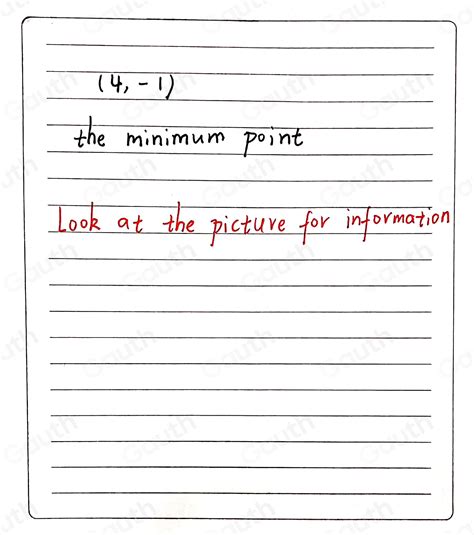 (4, -1)
the minimum point
Look at the picture for information